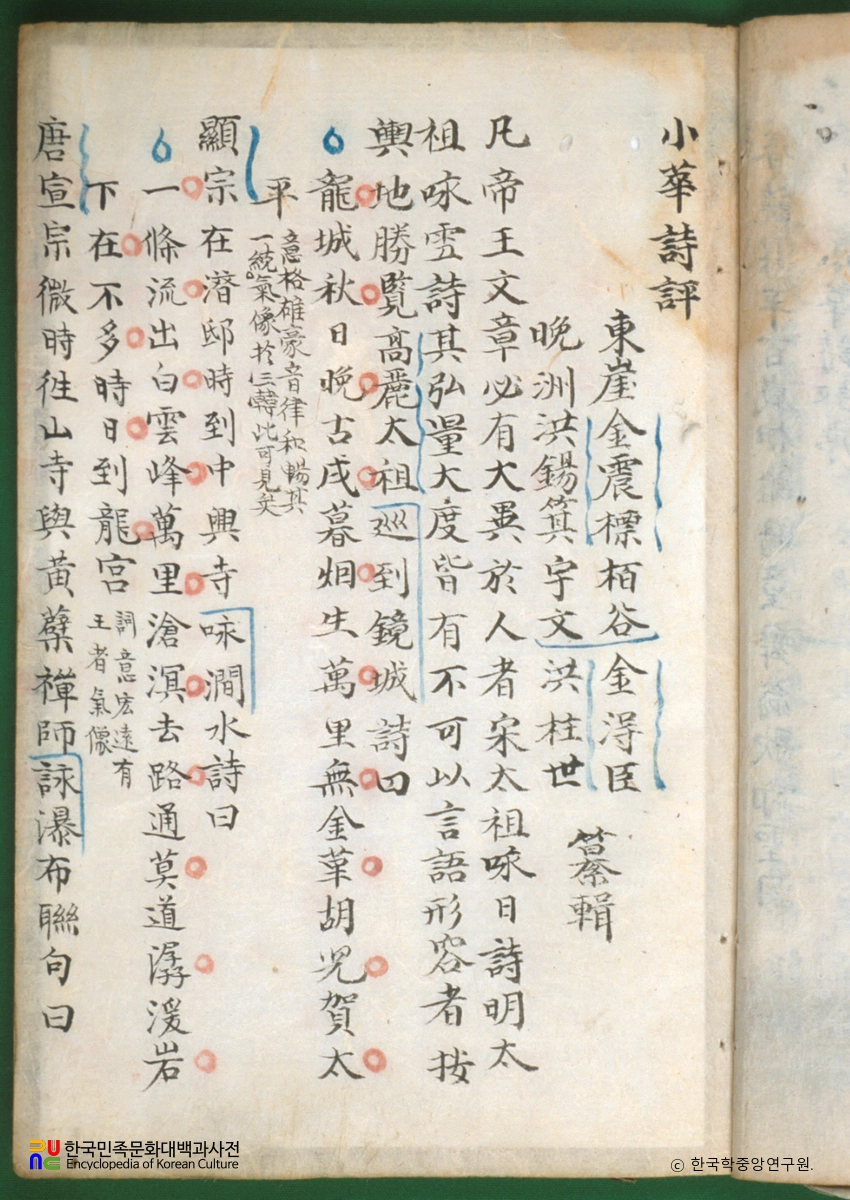 小華詩評
東崖金震標栢谷金淂臣
纂輯
晩洲洪錫箕宇文洪柱世
凡帝王文章必有大異於人者宋太祖咏日詩明太
祖咏雪詩其弘量大度皆有不可以言語形容者按
輿地勝覧高麗太祖巡到鏡城詩曰
龍城秋日晩古戍暮烟生萬里無金革胡児賀太
平
意格雄豪音律和暢其
一統氣像於三韓此可見矣
顯宗在潛邸時到中興寺咏澗水詩曰
一條流出白雲峰萬里滄溟去路通莫道潺湲岩
下在不多時日到龍宮
詞意宏遠有
王者氣像
唐宣宗微時徃山寺與黃蘗禪師詠瀑布聯句曰
한국민족문화대백과사전
Encyclopedia of Korean Culture
© 한국학중앙연구원.